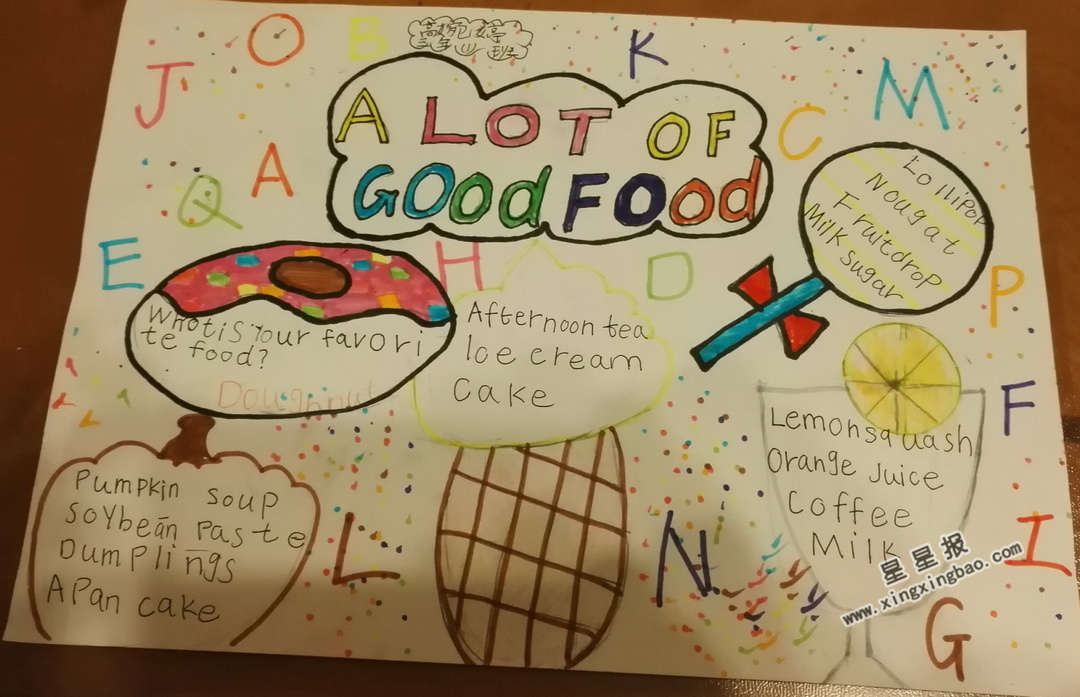 J
O
B
K
M
C
A LOT OF
GOOd FOOd
A
Q
E
H
D
P
Lollipop
Nougat
Fruitdrop
Milk sugar
What is your favori
te food?
Doughnut
Afternoon tea
Ice cream
Cake
F
Lemonsquash
Orange Juice
Coffee
Milk
Pumpkin soup
Soybean paste
Dumplings
A Pan cake
L
N
I
G
星星报
www.xingxingbao.com